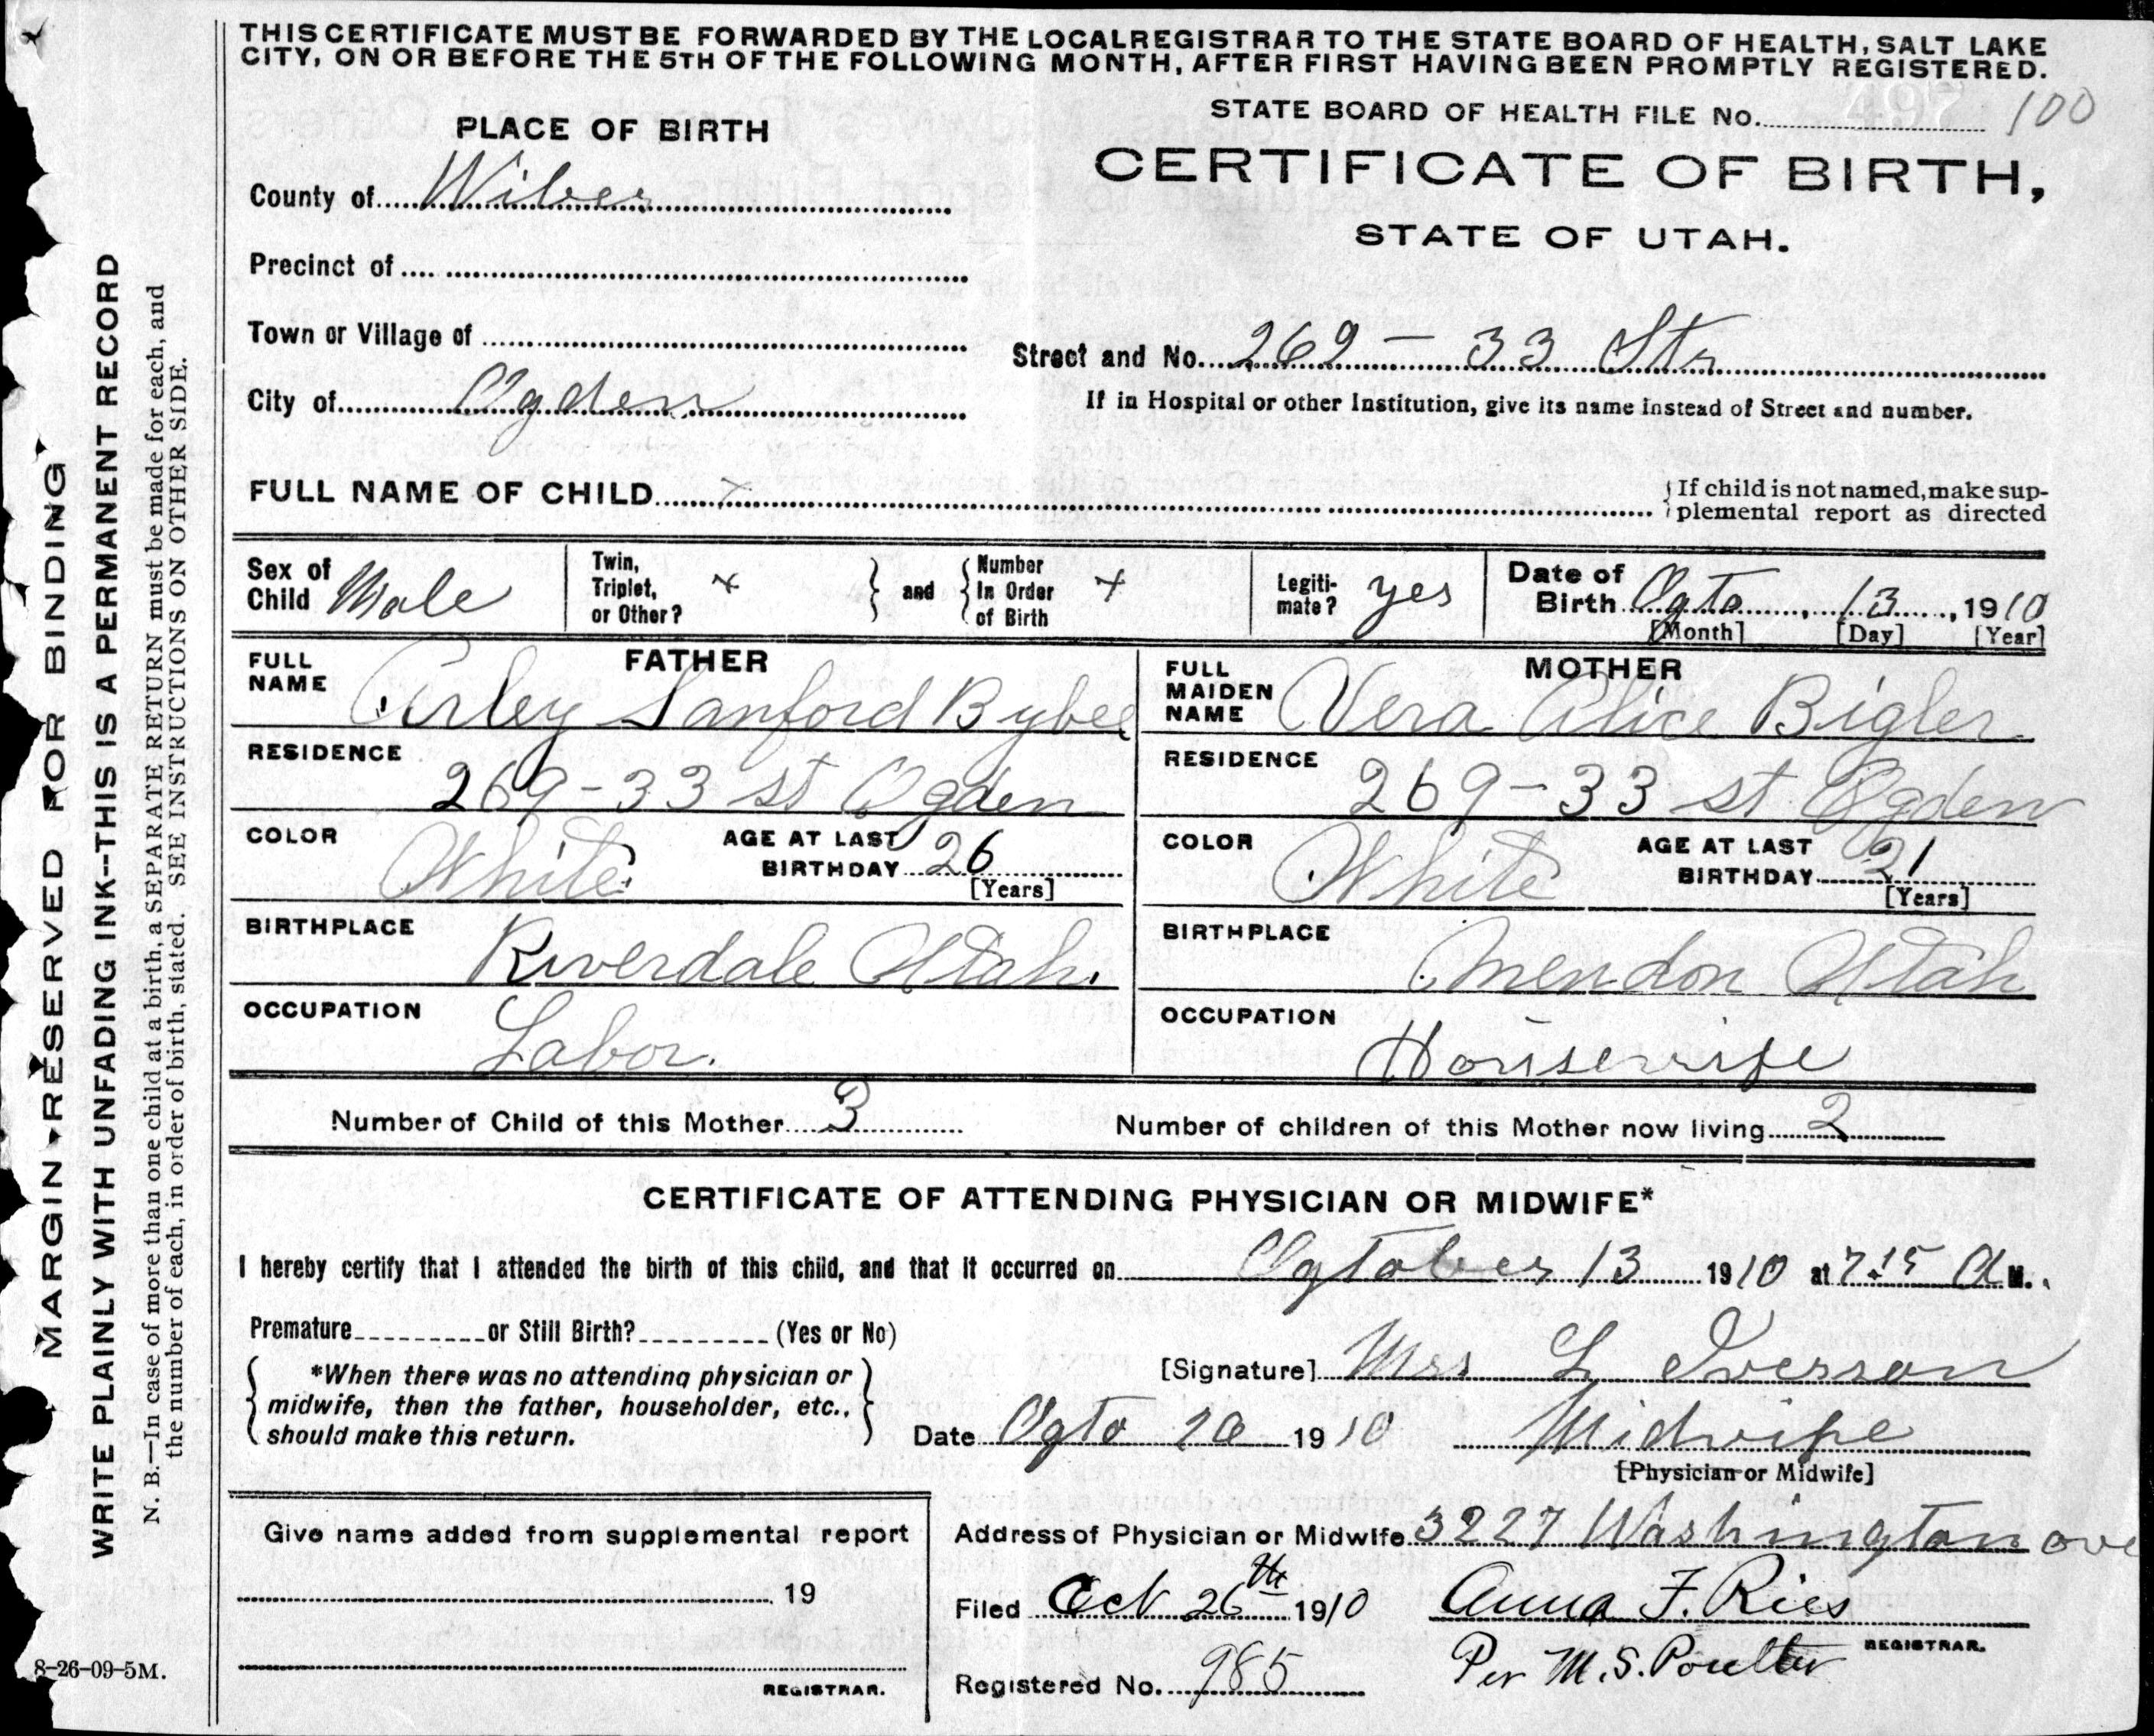 THIS CERTIFICATE MUST BE FORWARDED BY THE LOCAL REGISTRAR TO THE STATE BOARD OF HEALTH, SALT LAKE
CITY, ON OR BEFORE THE 5TH OF THE FOLLOWING MONTH, AFTER FIRST HAVING BEEN PROMPTLY REGISTERED.
STATE BOARD OF HEALTH FILE No. 497 100
PLACE OF BIRTH
CERTIFICATE OF BIRTH,
STATE OF UTAH.
County of Wiber
Precinct of
Town or Village of
Street and No. 269 - 33 Str
City of Ogden
If in Hospital or other Institution, give its name instead of Street and number.
FULL NAME OF CHILD x
If child is not named, make sup-
plemental report as directed
Sex of Child Male
Twin, Triplet, or Other? x
and Number In Order of Birth x
Legiti-mate? yes
Date of Birth Ogto, 13, 1910
[Month] [Day] [Year]
FATHER
FULL NAME Arley Sanford Bybee
RESIDENCE 269-33 st Ogden
COLOR White AGE AT LAST BIRTHDAY 26
[Years]
BIRTHPLACE Riverdale Utah.
OCCUPATION Labor.
MOTHER
FULL MAIDEN NAME Vera Alice Bigler
RESIDENCE 269-33 st Ogden
COLOR White AGE AT LAST BIRTHDAY 21
[Years]
BIRTHPLACE Mendon Utah
OCCUPATION Housewife
Number of Child of this Mother 3 Number of children of this Mother now living 2
CERTIFICATE OF ATTENDING PHYSICIAN OR MIDWIFE*
I hereby certify that I attended the birth of this child, and that it occurred on Ogtober 13 1910 at 7.15 A M.
Premature or Still Birth? (Yes or No)
*When there was no attending physician or
midwife, then the father, householder, etc.,
should make this return.
[Signature] Mrs L Iverson
Date Ogto 1910 Midwife
[Physician or Midwife]
Give name added from supplemental report
19
REGISTRAR.
Address of Physician or Midwife 3227 Washington ave
Filed Oct 26th 1910 Anna F. Ries
REGISTRAR.
Per M.S. Poulter
Registered No. 985
MARGIN RESERVED FOR BINDING
WRITE PLAINLY WITH UNFADING INK--THIS IS A PERMANENT RECORD
N. B.—In case of more than one child at a birth, a SEPARATE RETURN must be made for each, and
the number of each, in order of birth, stated. SEE INSTRUCTIONS ON OTHER SIDE.
8-26-09-5M.